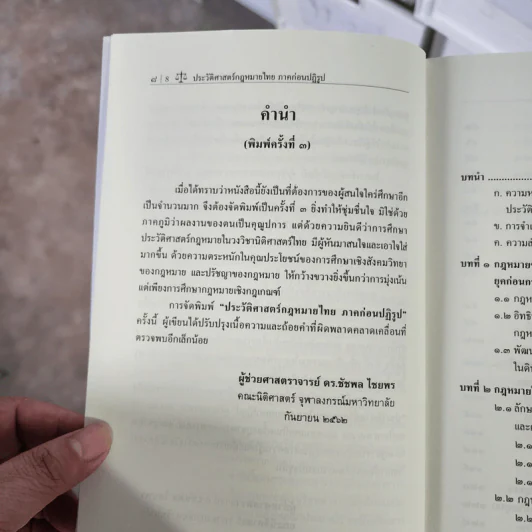 ๘ | 8 ประวัติศาสตร์กฎหมายไทย ภาคก่อนปฏิรูป
คำนำ
(พิมพ์ครั้งที่ ๓)
เมื่อได้ทราบว่าหนังสือนี้ยังเป็นที่ต้องการของผู้สนใจใคร่ศึกษาอีก
เป็นจำนวนมาก จึงต้องจัดพิมพ์เป็นครั้งที่ ๓ ยิ่งทำให้ชุ่มชื่นใจ มิใช่ด้วย
ภาคภูมิว่าผลงานของตนเป็นคุณูปการ แต่ด้วยความยินดีว่าการศึกษา
ประวัติศาสตร์กฎหมายในวงวิชานิติศาสตร์ไทย มีผู้หันมาสนใจและเอาใจใส่
มากขึ้น ด้วยความตระหนักในคุณประโยชน์ของการศึกษาเชิงสังคมวิทยา
ของกฎหมาย และปรัชญาของกฎหมาย ให้กว้างขวางยิ่งขึ้นกว่าการมุ่งเน้น
แต่เพียงการศึกษากฎหมายเชิงกฎเกณฑ์
การจัดพิมพ์ “ประวัติศาสตร์กฎหมายไทย ภาคก่อนปฏิรูป”
ครั้งนี้ ผู้เขียนได้ปรับปรุงเนื้อความและถ้อยคำที่ผิดพลาดคลาดเคลื่อนที่
ตรวจพบอีกเล็กน้อย
ผู้ช่วยศาสตราจารย์ ดร.ชัชพล ไชยพร
คณะนิติศาสตร์ จุฬาลงกรณ์มหาวิทยาลัย
กันยายน ๒๕๖๒
บทนำ
ก. ความ
ประวัติ
ข. การจำ
ค. ความสำ
บทที่ ๑ กฎหมาย
ยุคก่อน
๑.๑ กฎห
๑.๒ อิทธิ
กฎห
๑.๓ พัฒน
ในดิน
บทที่ ๒ กฎหมายไ
๒.๑ ลักษ
และ
๒.๑
๒.๑
๒.๑
๒.๒ กฎ
๒.๒